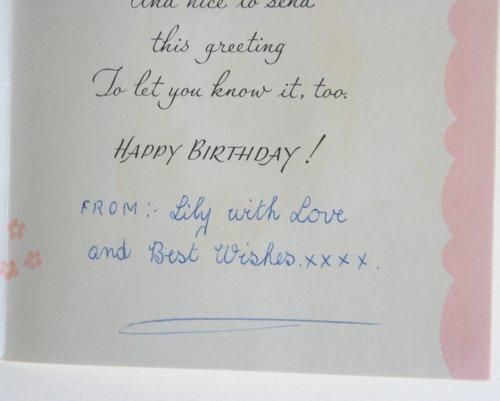 And nice to send
this greeting
To let you know it, too.
HAPPY BIRTHDAY!
FROM:- Lily with Love
and Best Wishes.xxxx.